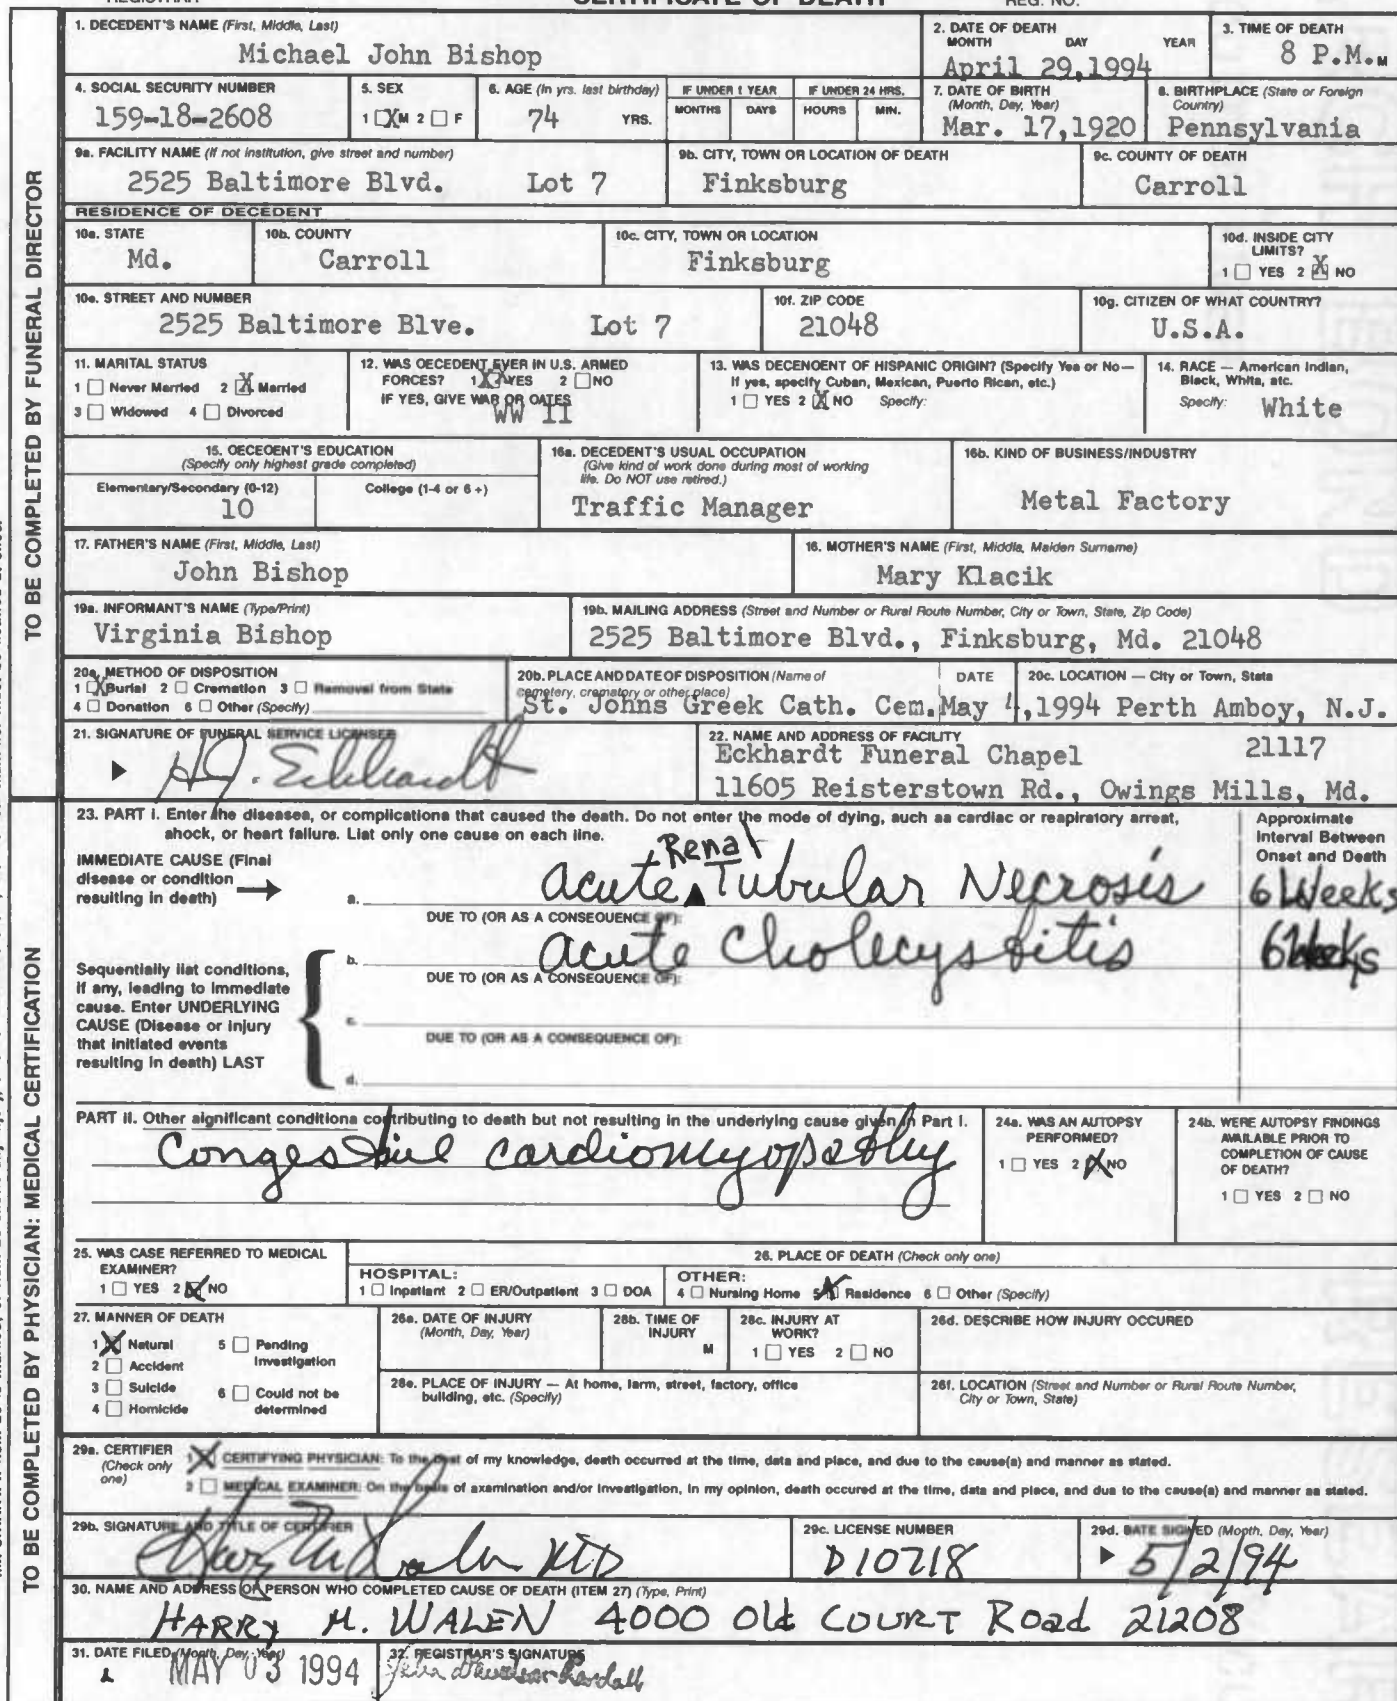 CERTIFICATE OF DEATH
REGISTRAR
REG. NO.
1. DECEDENT'S NAME (First, Middle, Last)
Michael John Bishop
2. DATE OF DEATH
MONTH DAY YEAR
April 29,1994
3. TIME OF DEATH
8 P.M.M
4. SOCIAL SECURITY NUMBER
159-18-2608
5. SEX
1 ☒ M 2 ☐ F
6. AGE (In yrs. last birthday)
74 YRS.
IF UNDER 1 YEAR
MONTHS DAYS
IF UNDER 24 HRS.
HOURS MIN.
7. DATE OF BIRTH
(Month, Day, Year)
Mar. 17,1920
8. BIRTHPLACE (State or Foreign
Country)
Pennsylvania
9a. FACILITY NAME (If not institution, give street and number)
2525 Baltimore Blvd. Lot 7
9b. CITY, TOWN OR LOCATION OF DEATH
Finksburg
9c. COUNTY OF DEATH
Carroll
RESIDENCE OF DECEDENT
10a. STATE
Md.
10b. COUNTY
Carroll
10c. CITY, TOWN OR LOCATION
Finksburg
10d. INSIDE CITY
LIMITS?
1 ☐ YES 2 ☒ NO
10e. STREET AND NUMBER
2525 Baltimore Blve. Lot 7
10f. ZIP CODE
21048
10g. CITIZEN OF WHAT COUNTRY?
U.S.A.
11. MARITAL STATUS
1 ☐ Never Married 2 ☒ Married
3 ☐ Widowed 4 ☐ Divorced
12. WAS DECEDENT EVER IN U.S. ARMED
FORCES? 1 ☒ YES 2 ☐ NO
IF YES, GIVE WAR OR DATES
WW II
13. WAS DECENDENT OF HISPANIC ORIGIN? (Specify Yes or No—
If yes, specify Cuban, Mexican, Puerto Rican, etc.)
1 ☐ YES 2 ☒ NO Specify:
14. RACE — American Indian,
Black, White, etc.
Specify: White
15. DECEDENT'S EDUCATION
(Specify only highest grade completed)
Elementary/Secondary (0-12)
10
College (1-4 or 5+)
16a. DECEDENT'S USUAL OCCUPATION
(Give kind of work done during most of working
life. Do NOT use retired.)
Traffic Manager
16b. KIND OF BUSINESS/INDUSTRY
Metal Factory
17. FATHER'S NAME (First, Middle, Last)
John Bishop
18. MOTHER'S NAME (First, Middle, Maiden Surname)
Mary Klacik
19a. INFORMANT'S NAME (Type/Print)
Virginia Bishop
19b. MAILING ADDRESS (Street and Number or Rural Route Number, City or Town, State, Zip Code)
2525 Baltimore Blvd., Finksburg, Md. 21048
20a. METHOD OF DISPOSITION
1 ☒ Burial 2 ☐ Cremation 3 ☐ Removal from State
4 ☐ Donation 5 ☐ Other (Specify)
20b. PLACE AND DATE OF DISPOSITION (Name of
cemetery, crematory or other place)
DATE
St. Johns Greek Cath. Cem. May 4,1994
20c. LOCATION — City or Town, State
Perth Amboy, N.J.
21. SIGNATURE OF FUNERAL SERVICE LICENSEE
H.J. Eckhardt
22. NAME AND ADDRESS OF FACILITY
Eckhardt Funeral Chapel 21117
11605 Reisterstown Rd., Owings Mills, Md.
TO BE COMPLETED BY FUNERAL DIRECTOR
23. PART I. Enter the diseases, or complications that caused the death. Do not enter the mode of dying, such as cardiac or respiratory arrest,
shock, or heart failure. List only one cause on each line.
Approximate
Interval Between
Onset and Death
IMMEDIATE CAUSE (Final
disease or condition
resulting in death)
a. acute Renal Tubular Necrosis 6 Weeks
DUE TO (OR AS A CONSEQUENCE OF):
b. acute Cholecystitis 6 Weeks
DUE TO (OR AS A CONSEQUENCE OF):
c.
DUE TO (OR AS A CONSEQUENCE OF):
d.
Sequentially list conditions,
if any, leading to immediate
cause. Enter UNDERLYING
CAUSE (Disease or injury
that initiated events
resulting in death) LAST
PART II. Other significant conditions contributing to death but not resulting in the underlying cause given in Part I.
Congestive cardiomyopathy
24a. WAS AN AUTOPSY
PERFORMED?
1 ☐ YES 2 ☒ NO
24b. WERE AUTOPSY FINDINGS
AVAILABLE PRIOR TO
COMPLETION OF CAUSE
OF DEATH?
1 ☐ YES 2 ☐ NO
25. WAS CASE REFERRED TO MEDICAL
EXAMINER?
1 ☐ YES 2 ☒ NO
26. PLACE OF DEATH (Check only one)
HOSPITAL:
1 ☐ Inpatient 2 ☐ ER/Outpatient 3 ☐ DOA
OTHER:
4 ☐ Nursing Home 5 ☒ Residence 6 ☐ Other (Specify)
27. MANNER OF DEATH
1 ☒ Natural 5 ☐ Pending
Investigation
2 ☐ Accident
3 ☐ Suicide 6 ☐ Could not be
determined
4 ☐ Homicide
28a. DATE OF INJURY
(Month, Day, Year)
28b. TIME OF
INJURY
M
28c. INJURY AT
WORK?
1 ☐ YES 2 ☐ NO
28d. DESCRIBE HOW INJURY OCCURED
28e. PLACE OF INJURY — At home, farm, street, factory, office
building, etc. (Specify)
28f. LOCATION (Street and Number or Rural Route Number,
City or Town, State)
29a. CERTIFIER
(Check only
one)
1 ☒ CERTIFYING PHYSICIAN: To the best of my knowledge, death occurred at the time, data and place, and due to the cause(s) and manner as stated.
2 ☐ MEDICAL EXAMINER: On the basis of examination and/or investigation, in my opinion, death occured at the time, data and place, and due to the cause(s) and manner as stated.
29b. SIGNATURE AND TITLE OF CERTIFIER
MD
29c. LICENSE NUMBER
D10718
29d. DATE SIGNED (Month, Day, Year)
5/2/94
30. NAME AND ADDRESS OF PERSON WHO COMPLETED CAUSE OF DEATH (ITEM 27) (Type, Print)
HARRY M. WALEN 4000 Old COURT Road 21208
31. DATE FILED (Month, Day, Year)
MAY 03 1994
32. REGISTRAR'S SIGNATURE
TO BE COMPLETED BY PHYSICIAN: MEDICAL CERTIFICATION